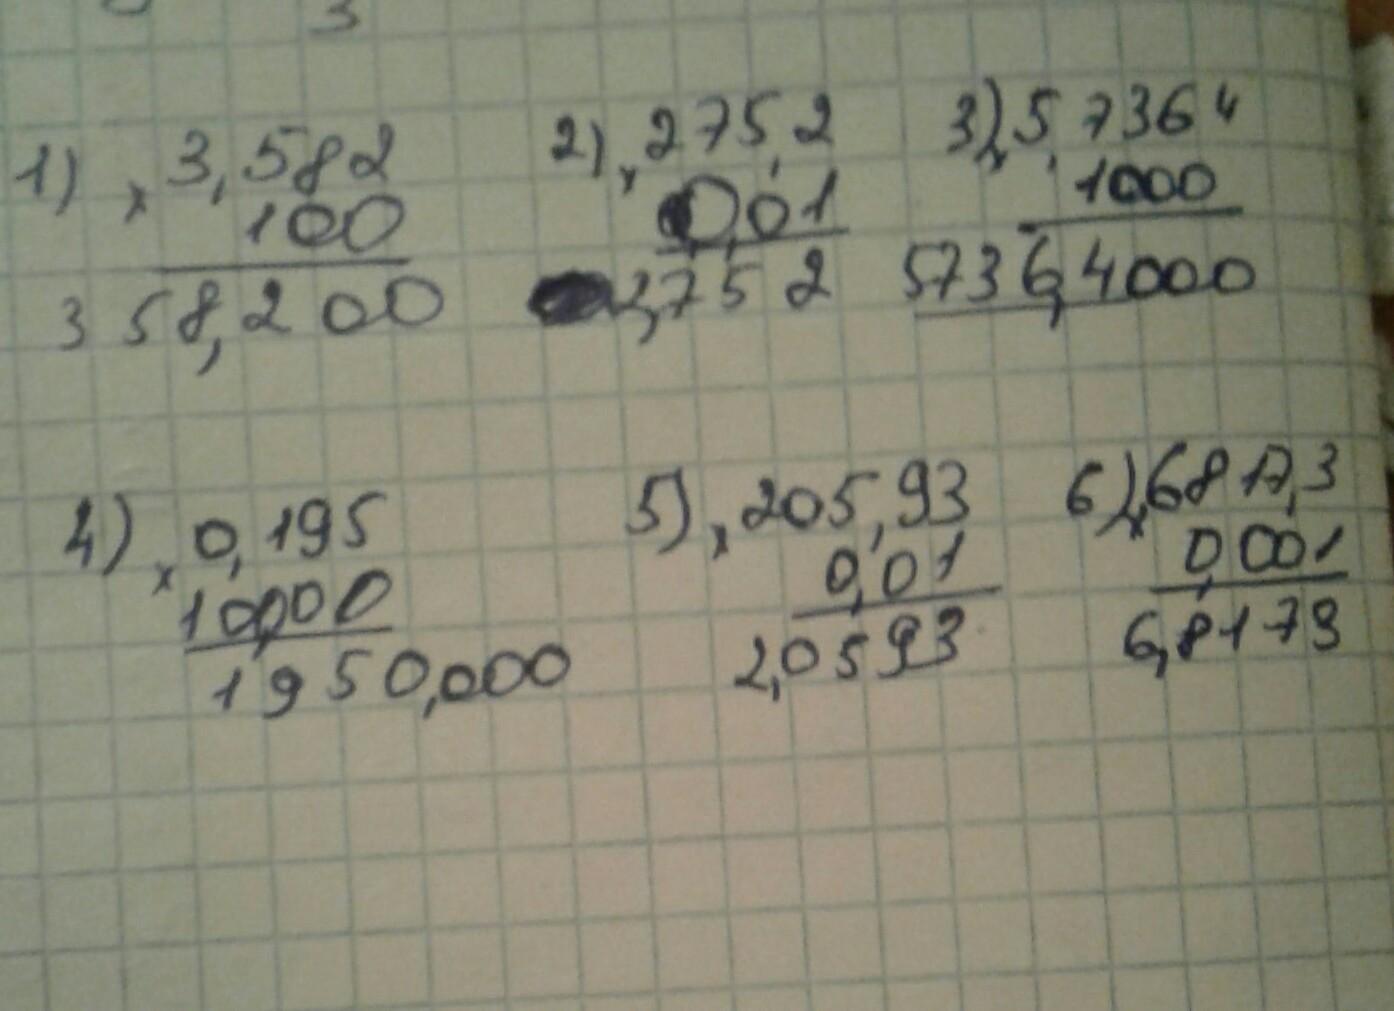 3
1) × 3,582 2) × 275,2 3) × 5,7364
100 0,01 1000
358,200 2,752 5736,4000
4) × 0,195 5) × 205,93 6) × 6817,3
10000 0,01 0,001
1950,000 2,0593 6,8173